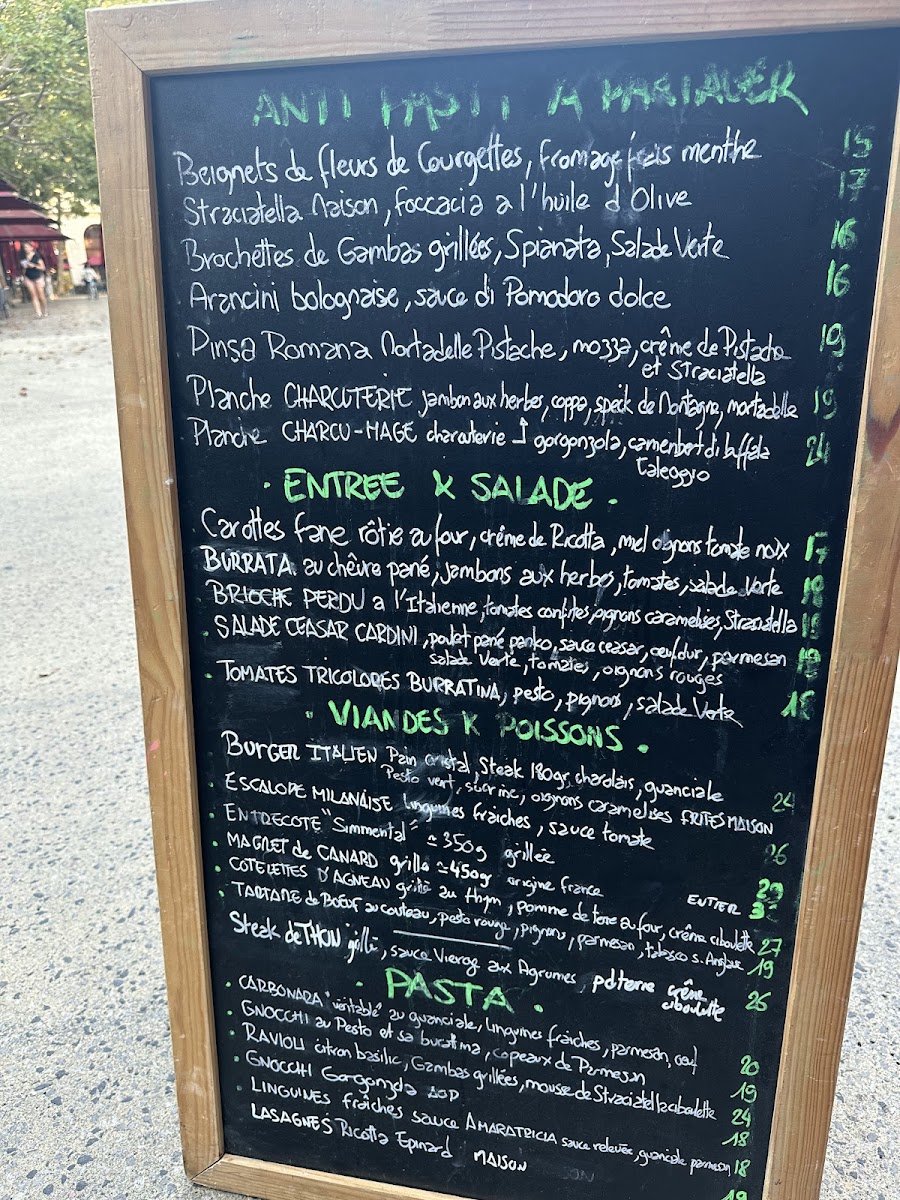 ANTI PASTI A PARTAGER
Beignets de fleurs de Courgettes, fromage frais menthe 15
Straciatella Maison, foccacia a l'huile d'Olive 17
Brochettes de Gambas grillées, Spianata, Salade Verte 16
Arancini bolognaise, sauce di Pomodoro dolce 16
Pinsa Romana Mortadelle Pistache, mozza, crême de Pistache 19
et Straciatella
Planche CHARCUTERIE jambon aux herbes, coppa, speck de Montagne, mortadelle 19
Planche CHARCU-MAGE charcuterie ↑ gorgonzola, camenbert di buffala 24
Taleggio
· ENTREE & SALADE ·
Carottes fane rôtie au four, crême de Ricotta, miel oignons tomate noix 17
BURRATA au chêvre pané, jambons aux herbes, tomates, salade Verte 18
BRIOCHE PERDU a l'Italienne, tomates confites, oignons caramelisés, Straciatella 18
· SALADE CEASAR CARDINI, poulet pané panko, sauce ceasar, oeuf dur, parmesan 19
salade Verte, tomates, oignons rouges
· TOMATES TRICOLORES BURRATINA, pesto, pignons, salade Verte 18
· VIANDES & POISSONS ·
BURGER ITALIEN Pain cristal, Steak 180gr, charolais, guanciale
Pesto vert, sucrine, oignons caramelisés FRITES MAISON 24
· ESCALOPE MILANAISE linguines fraîches, sauce tomate 26
· ENTRECOTE "Simmental" ≃ 350g grillée 29
· MAGRET de CANARD grillé ≃ 450g origine france ENTIER 32
· COTELETTES D'AGNEAU grillé au thym, pomme de terre au four, crême ciboulette 27
· TARTARE de BOEUF au couteau, pesto rouge, pignons, parmesan, tabasco s. Anglaise 19
Steak de THON grillé, sauce Vierge aux Agrumes, pdterre crême 26
ciboulette
· PASTA ·
· CARBONARA "véritable" au guanciale, linguines fraiches, parmesan, oeuf 20
· GNOCCHI au Pesto et sa buratina, copeaux de Parmesan 19
· RAVIOLI citron basilic, Gambas grillées, mousse de Straciatella ciboulette 24
· GNOCCHI Gorgonzola AOP 18
· LINGUINES fraîches sauce AMARATRICIA sauce relevée, guanciale parmesan 18
LASAGNES Ricotta Epinard MAISON 19